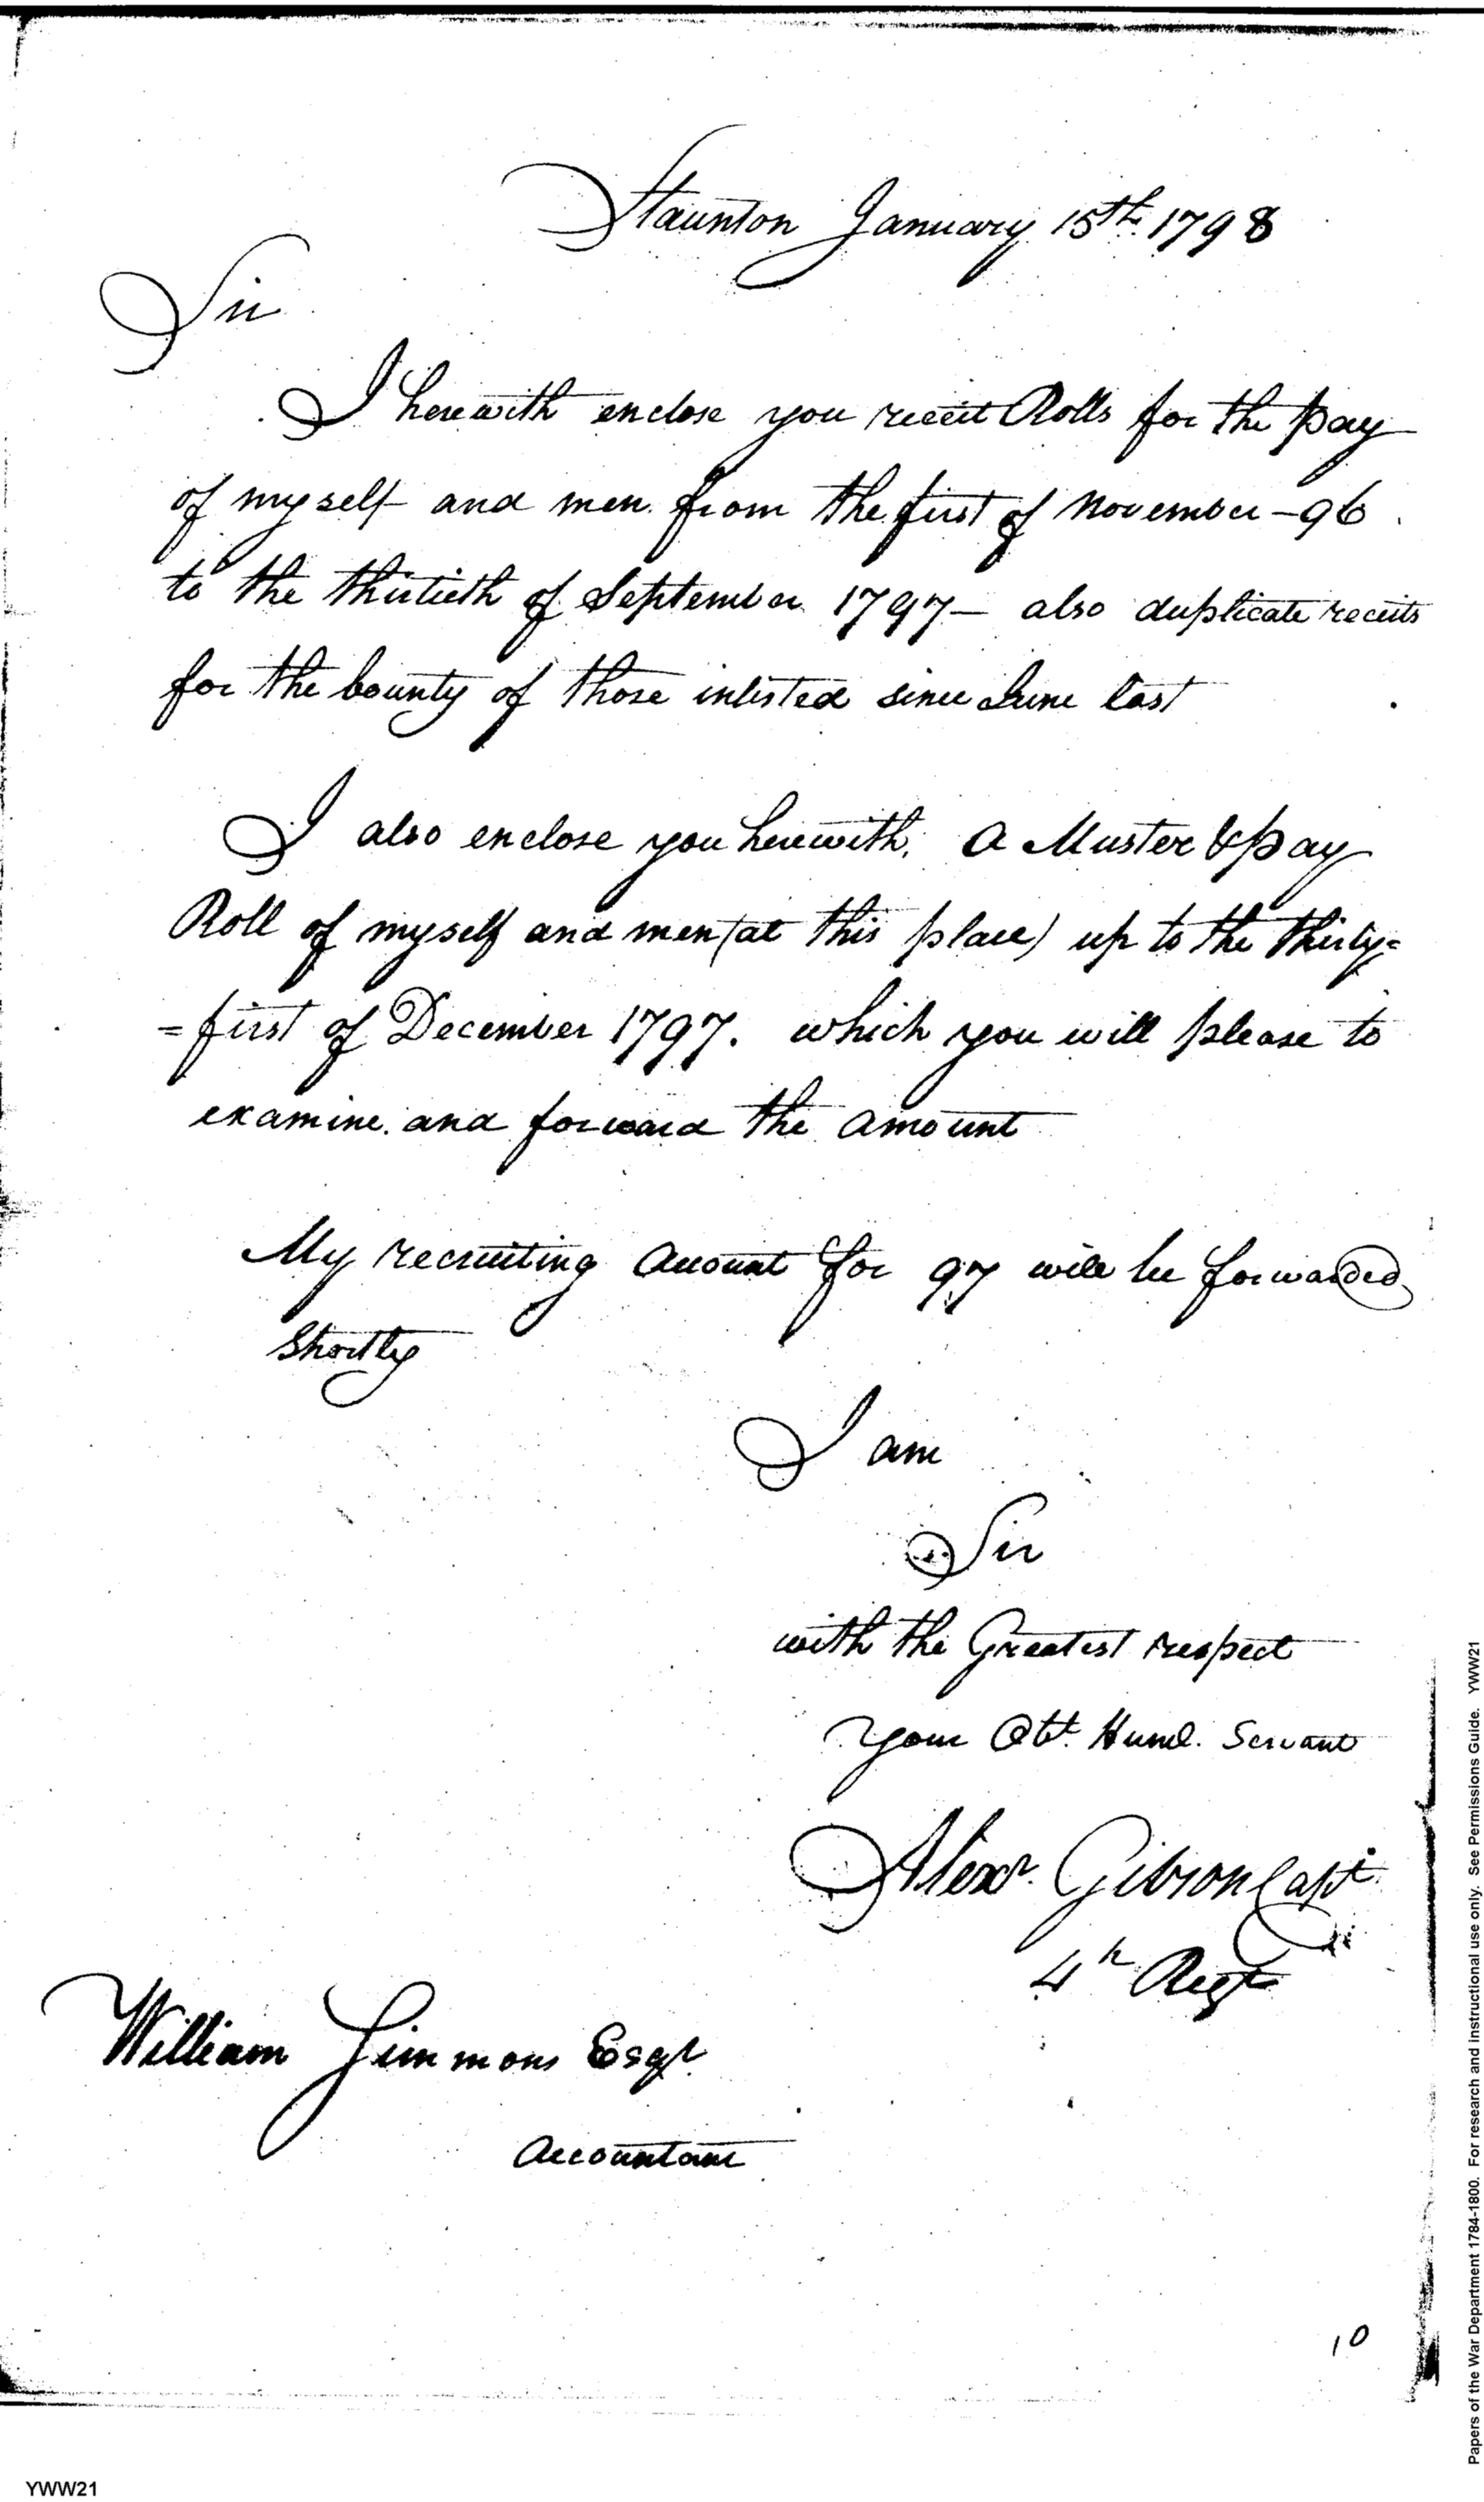 Staunton January 15th. 1798
Sir
I herewith enclose you receit Rolls for the pay
of myself and men from the first of November - 96
to the thirtieth of September 1797 - also duplicate receits
for the bounty of those inlisted since June last
I also enclose you herewith, a Muster & pay
Roll of myself and men (at this place) up to the thirty=
=first of December 1797. which you will please to
examine and forward the amount
My recruiting account for 97 will be forwarded
Shortly
I am
Sir
with the Greatest respect
your Obt. Huml. Servant
Alexr. Gibson Capt.
4th Regt
William Simmons Esqr.
Accountant
10
Papers of the War Department 1784-1800. For research and instructional use only. See Permissions Guide. YWW21
YWW21